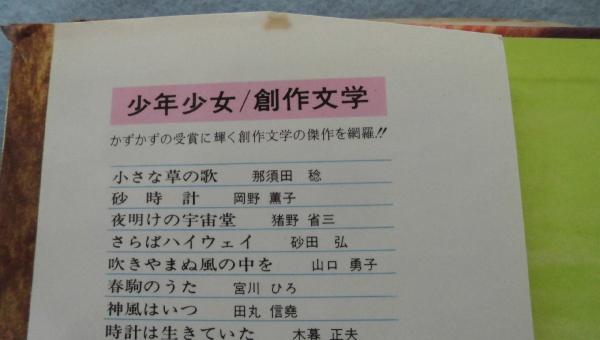 少年少女/創作文学
かずかずの受賞に輝く創作文学の傑作を網羅!!
小さな草の歌 那須田 稔
砂時計 岡野 薫子
夜明けの宇宙堂 猪野 省三
さらばハイウェイ 砂田 弘
吹きやまぬ風の中を 山口 勇子
春駒のうた 宮川 ひろ
神風はいつ 田丸 信堯
時計は生きていた 木暮 正夫